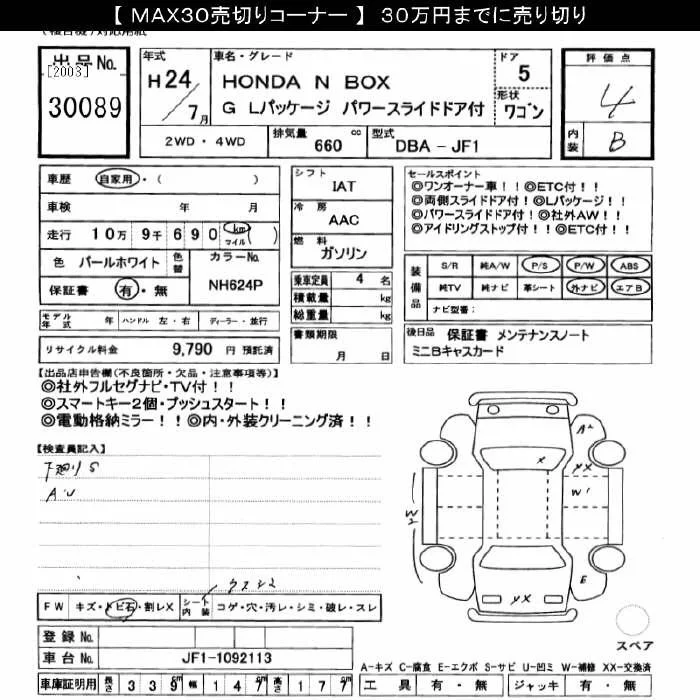 【 MAX30売切りコーナー 】 30万円までに売り切り
出品No.
[2003]
30089
年式
H24/7月
車名・グレード
HONDA N BOX
G Lパッケージ パワースライドドア付
ドア
5
形状
ワゴン
評価点
4
内装
B
2WD・4WD
排気量
660 cc
型式
DBA-JF1
車歴 自家用・( )
車検 年 月
走行 10万 9千 690 km マイル ( )
色 パールホワイト 色替
カラーNo.
NH624P
保証書 有・無
モデル年式 年 ハンドル 左・右 ディーラー・並行
リサイクル料金 9,790 円 預託済
シフト
IAT
冷房
AAC
燃料
ガソリン
乗車定員 4 名
積載量 kg
総重量 kg
書類期限
月 日
セールスポイント
◎ワンオーナー車！！◎ETC付！！
◎両側スライドドア付！◎Lパッケージ！！
◎パワースライドドア付！◎社外AW！！
◎アイドリングストップ付！！◎ETC付！！
装備品
S/R 純A/W P/S P/W ABS
純TV 純ナビ 革シート 外ナビ エアB
ナビ型番:
後日品 保証書 メンテナンスノート
ミニBキャスカード
【出品店申告欄(不良箇所・欠品・注意事項等)】
◎社外フルセグナビ・TV付！！
◎スマートキー2個・プッシュスタート！！
◎電動格納ミラー！！◎内・外装クリーニング済！！
【検査員記入】
下廻りS
AU
A2
X
XX
W1
W2
E
XX
クスミ
FW キズ・トビ石・割レX シート内装 コゲ・穴・汚レ・シミ・破レ・スレ
登録No.
車台No. JF1-1092113
スペア
A-キズ C-腐食 E-エクボ S-サビ U-凹ミ W-補修 XX-交換済
車庫証明用 長さ 339cm 幅 147cm 高さ 177cm
工具 有・無 ジャッキ 有・無